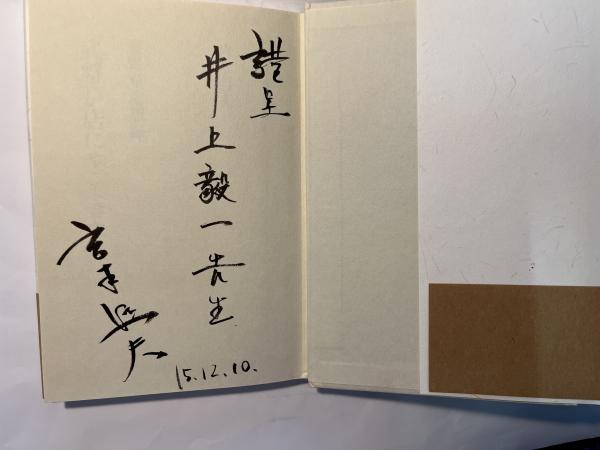 謹呈
井上毅一先生
15.12.10.